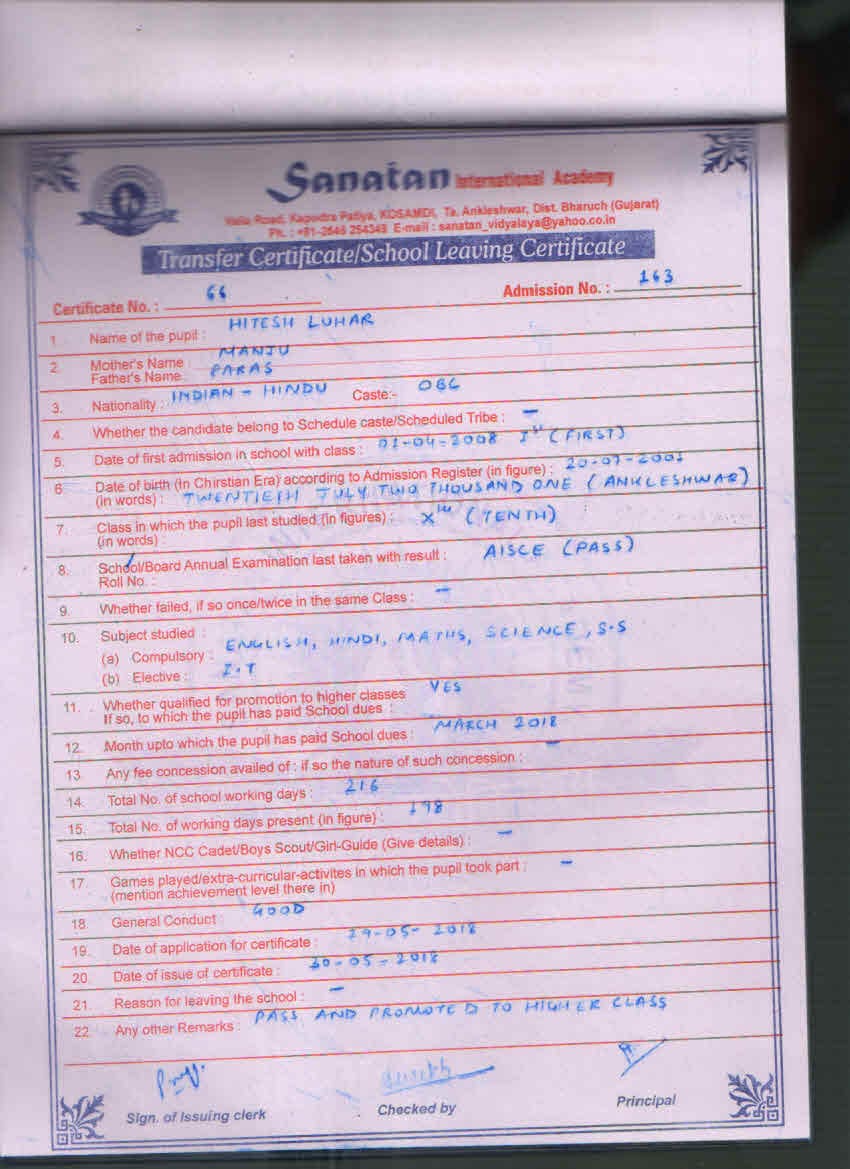 Sanatan International Academy
Valia Road, Kapodra Patiya, KOSAMDI, Ta. Ankleshwar, Dist. Bharuch (Gujarat)
Ph. : +91-2646 254349 E-mail : sanatan_vidyalaya@yahoo.co.in
Transfer Certificate/School Leaving Certificate
Certificate No. : 66 Admission No. : 163
1. Name of the pupil : HITESH LUHAR
2. Mother's Name : MANJU
Father's Name : PARAS
3. Nationality : INDIAN - HINDU Caste:- OBC
4. Whether the candidate belong to Schedule caste/Scheduled Tribe : -
5. Date of first admission in school with class : 01-04-2008 Ist (FIRST)
6. Date of birth (In Chirstian Era) according to Admission Register (in figure) : 20-07-2001
(in words) : TWENTIETH JULY TWO THOUSAND ONE (ANKLESHWAR)
7. Class in which the pupil last studied (in figures) : Xth (TENTH)
(in words) :
8. School/Board Annual Examination last taken with result : AISCE (PASS)
Roll No. :
9. Whether failed, if so once/twice in the same Class : -
10. Subject studied :
(a) Compulsory : ENGLISH, HINDI, MATHS, SCIENCE, S.S
(b) Elective : I.T
11. Whether qualified for promotion to higher classes YES
If so, to which the pupil has paid School dues :
12. Month upto which the pupil has paid School dues : MARCH 2018
13. Any fee concession availed of : if so the nature of such concession : -
14. Total No. of school working days : 216
15. Total No. of working days present (in figure) : 198
16. Whether NCC Cadet/Boys Scout/Girl-Guide (Give details) : -
17. Games played/extra-curricular-activites in which the pupil took part : -
(mention achievement level there in)
18. General Conduct : GOOD
19. Date of application for certificate : 29-05-2018
20. Date of issue of certificate : 30-05-2018
21. Reason for leaving the school : -
22. Any other Remarks : PASS AND PROMOTED TO HIGHER CLASS
Sign. of Issuing clerk Checked by Principal